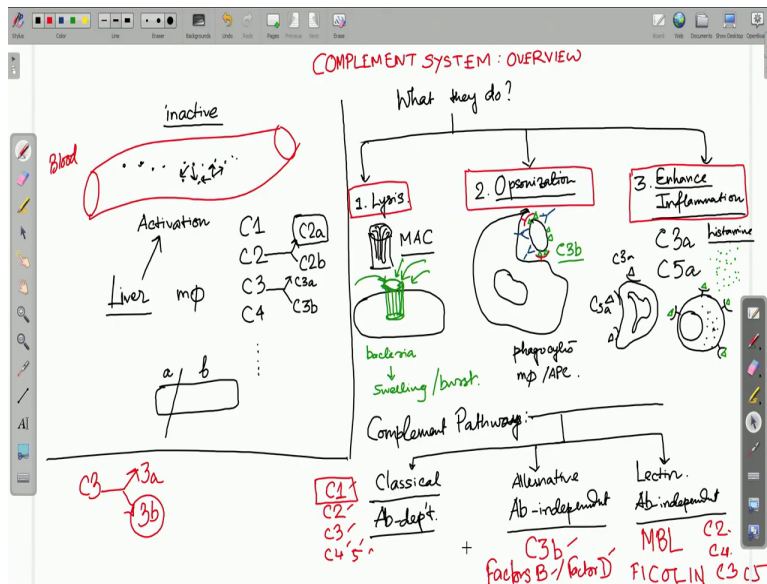 Stylus
Color
Line
Eraser
Backgrounds
Undo
Redo
Pages
Previous
Next
Erase
Board
Web
Documents
Show Desktop
OpenBoard
COMPLEMENT SYSTEM : OVERVIEW
inactive
Blood
Activation
Liver
mφ
C1
C2
C2a
C2b
C3
C3a
C3b
C4
a
b
C3
3a
3b
What they do?
1. Lysis.
MAC
bacteria
Swelling/burst.
2. Opsonization
C3b
phagocytic
mφ/APC.
3. Enhance
Inflammation
C3a
C5a
histamine
C3a
C5a
Complement Pathways:
Classical
Ab-dep't.
C1
C2
C3
C4 5
Alternative
Ab-independent
C3b
Factors B / Factor D
Lectin
Ab independent
MBL
FICOLIN
C2
C4
C3 C5